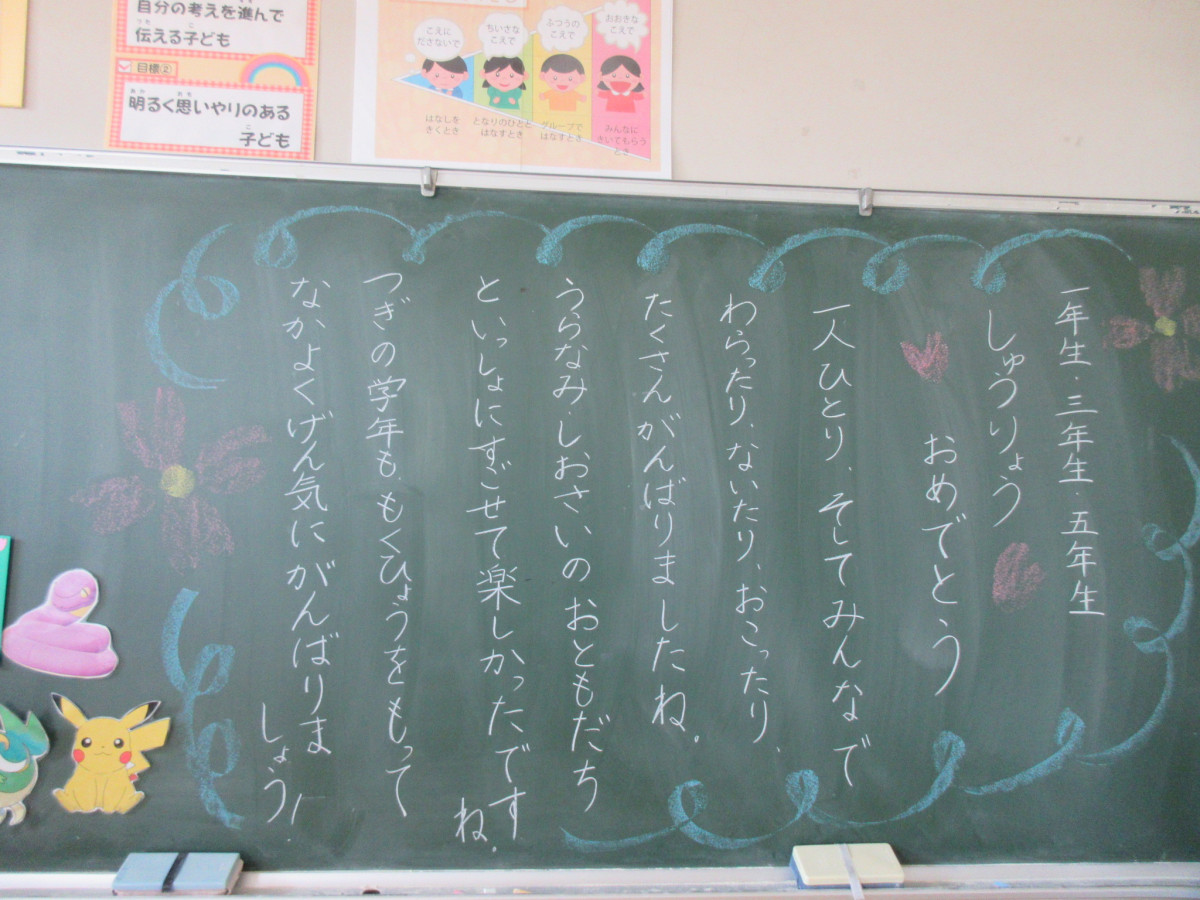 自分の考えを進んで
伝える子ども
目標②
明るく思いやりのある
子ども
こえに
ださないで
ちいさな
こえで
ふつうの
こえで
おおきな
こえで
はなしを
きくとき
となりのひとと
はなすとき
グループで
はなすとき
みんなに
きいてもらう
とき
一年生・三年生・五年生
しゅうりょう
おめでとう
一人ひとり、そしてみんなで
わらったり、ないたり、おこったり、
たくさんがんばりましたね。
うらなみ・しおさいのおともだち
といっしょにすごせて楽しかったです
ね。
つぎの学年も、もくひょうをもって
なかよくげん気にがんばりま
しょう!